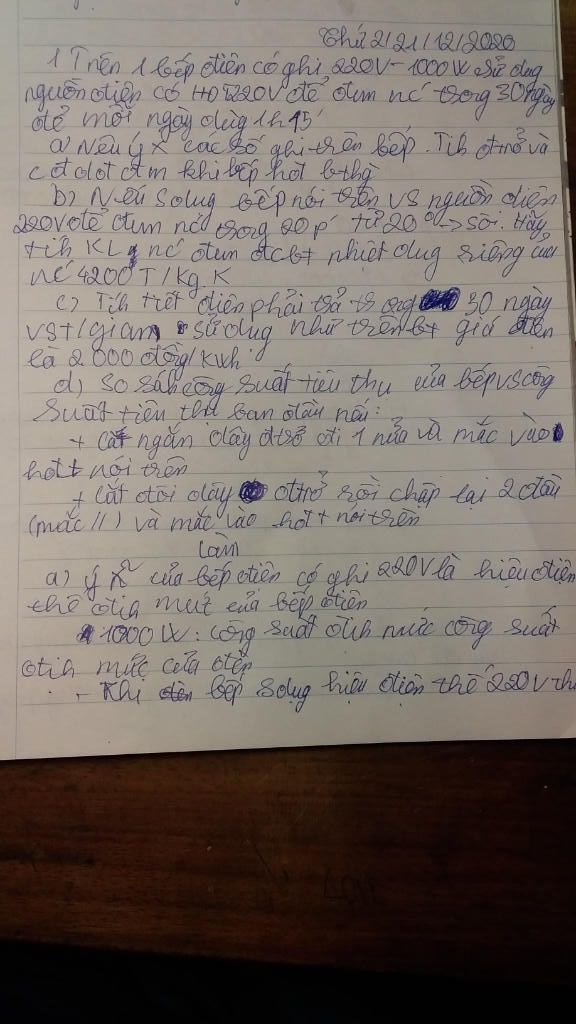 Thứ 2/21/12/2020
1 Trên 1 bếp điện có ghi 220V - 1000W sử dug
nguồn điện có HĐT 220V để đun nc trog 30 ngày
để mỗi ngày dùg 1h 15'
a) Nêu ý x các số ghi trên bếp. Tíh đtrở và
cđ dđ khi bếp hđt bthg
b) Nếu sdug bếp nói trên vs nguồn điện
220V để đun nc trog 20p' từ 20° -> sôi. Hãy
tíh KLg nc đun đc bt nhiệt dug riêng của
nc 4200J/Kg.K
c) Tíh tiết điện phải trả trog 30 ngày
vs t/gian sử dug như trên bt giá điện
là 2000 đồng/kWh
d) So sáh côg suất tiêu thụ của bếp vs côg
suất tiêu thụ ban đầu nếu:
+ Cắt ngắn dây đtrở đi 1 nửa và mắc vào
hđt nói trên
+ Cắt đôi dây đtrở rồi chập lại 2 đầu
(mắc //) và mắc vào hđt nói trên
Làm
a) ý x̃ của bếp điện có ghi 220V là hiệu điện
thế địh mức của bếp điện
1000W: côg suất địh mức côg suất
địh mức của đèn
- Khi bếp sdug hiệu điện thế 220V thì